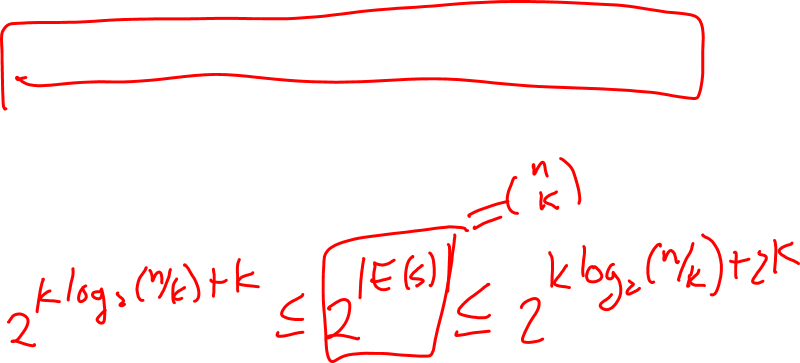 = (n k)
2^{k log₂(n/k)+k} ≤ 2^{|E(s)|} ≤ 2^{k log₂(n/k)+2k}